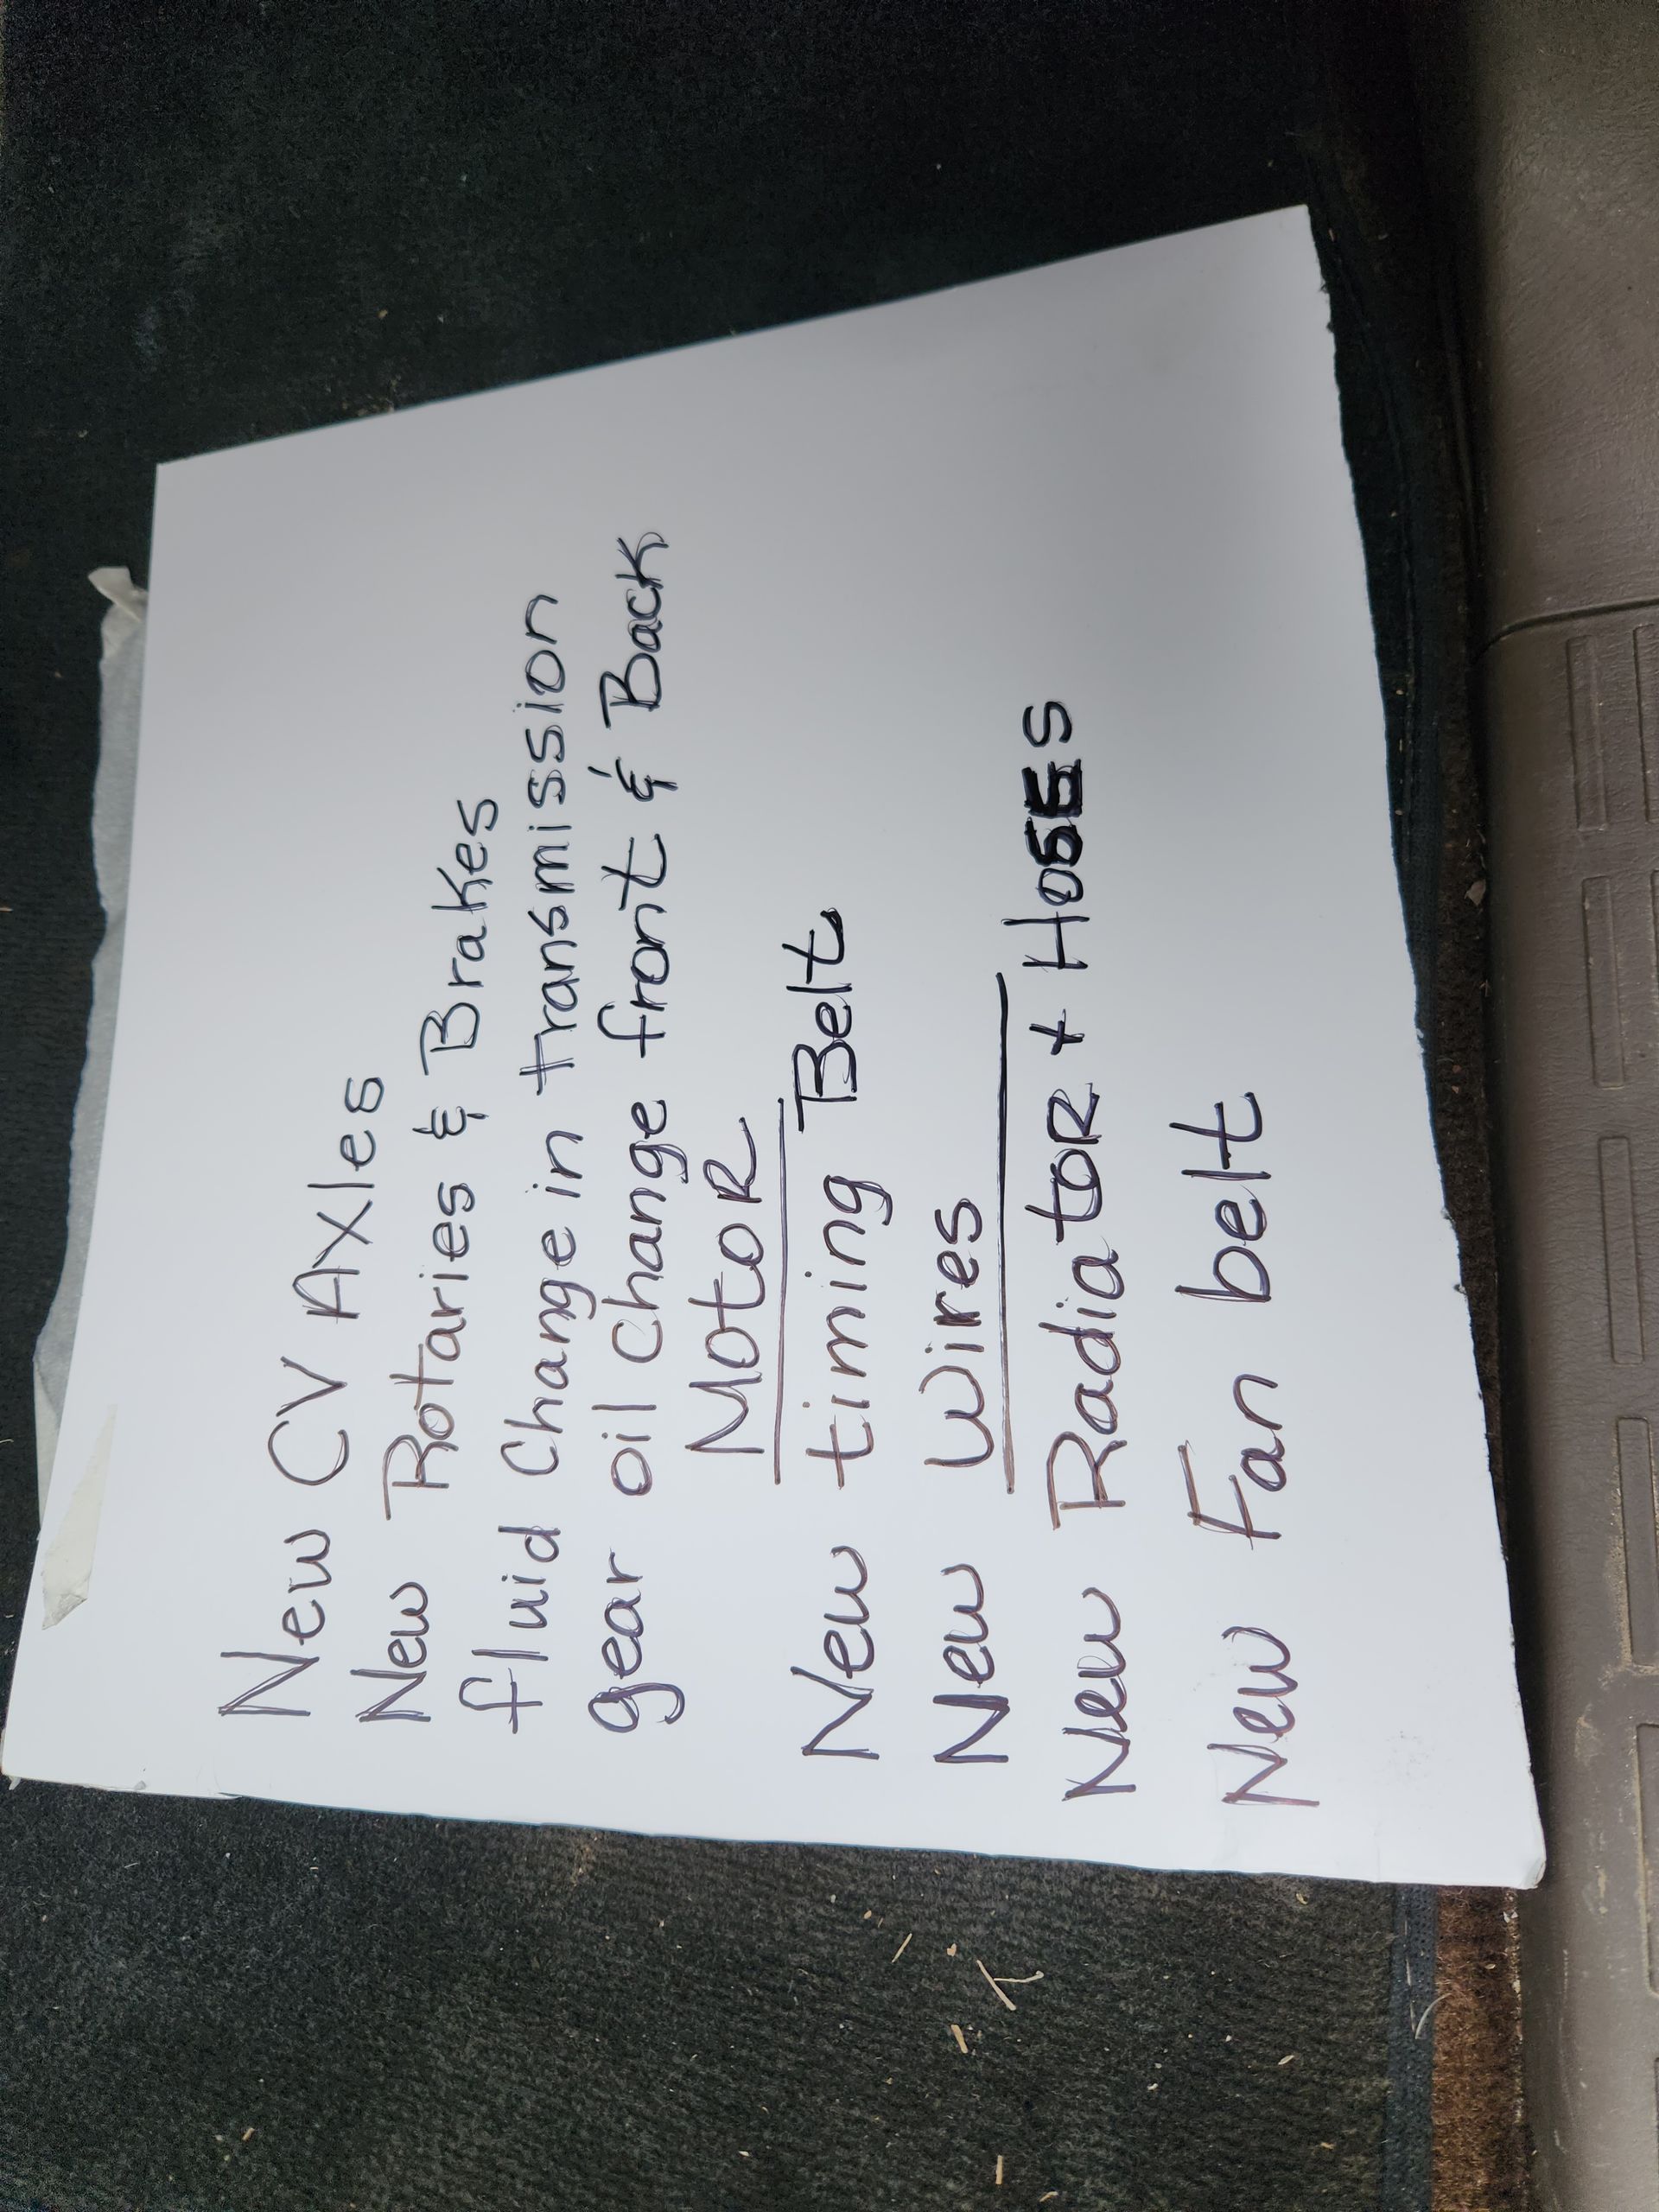 New CV Axles
New Rotaries & Brakes
fluid Change in transmission
gear oil change front & Back
MotoR
New timing Belt
New Wires
New RadiatoR + HosEs
New Fan belt